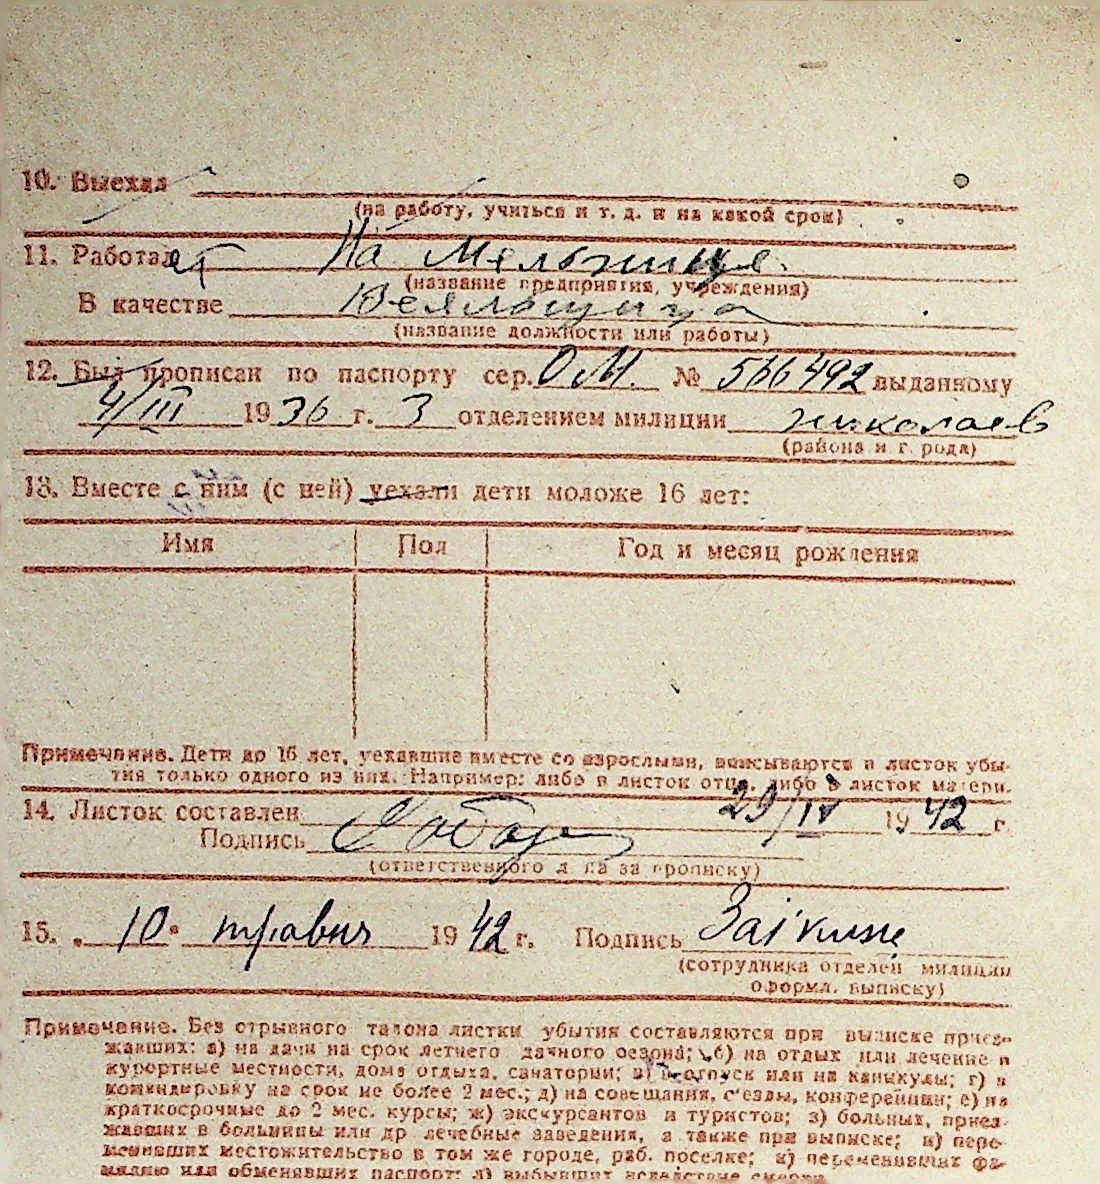 10. Выехал
(на работу, учиться и т. д. и на какой срок)
11. Работает На Мельнице.
(название предприятия, учреждения)
В качестве Веяльщица
(название должности или работы)
12. Был прописан по паспорту сер. ОМ. № 566492 выданному
4/III 1936 г. 3 отделением милиции николаев
(района и города)
13. Вместе с ним (с ней) уехали дети моложе 16 лет:
Имя Пол Год и месяц рождения
Примечание. Дети до 16 лет, уехавшие вместе со взрослыми, вписываются в листок убы-
тия только одного из них. Например: либо в листок отца, либо в листок матери.
14. Листок составлен 29/IV 1942 г.
Подпись
(ответственного лица за прописку)
15. „10" травня 1942 г. Подпись
(сотрудника отделен милиции
оформл. выписку)
Примечание. Без отрывного талона листки убытия составляются при выписке приез-
жавших: а) на дачи на срок летнего дачного сезона; б) на отдых или лечение в
курортные местности, дома отдыха, санатории; в) в отпуск или на каникулы; г) в
командировку на срок не более 2 мес.; д) на совещания, с'езды, конференции; е) на
краткосрочные до 2 мес. курсы; ж) экскурсантов и туристов; з) больных, приез-
жавших в больницы или др лечебные заведения, а также при выписке; и) пере-
менивших местожительство в том же городе, раб. поселке; к) переменивших фа-
милию или обменявших паспорт; л) выбывших вследствие смерти.